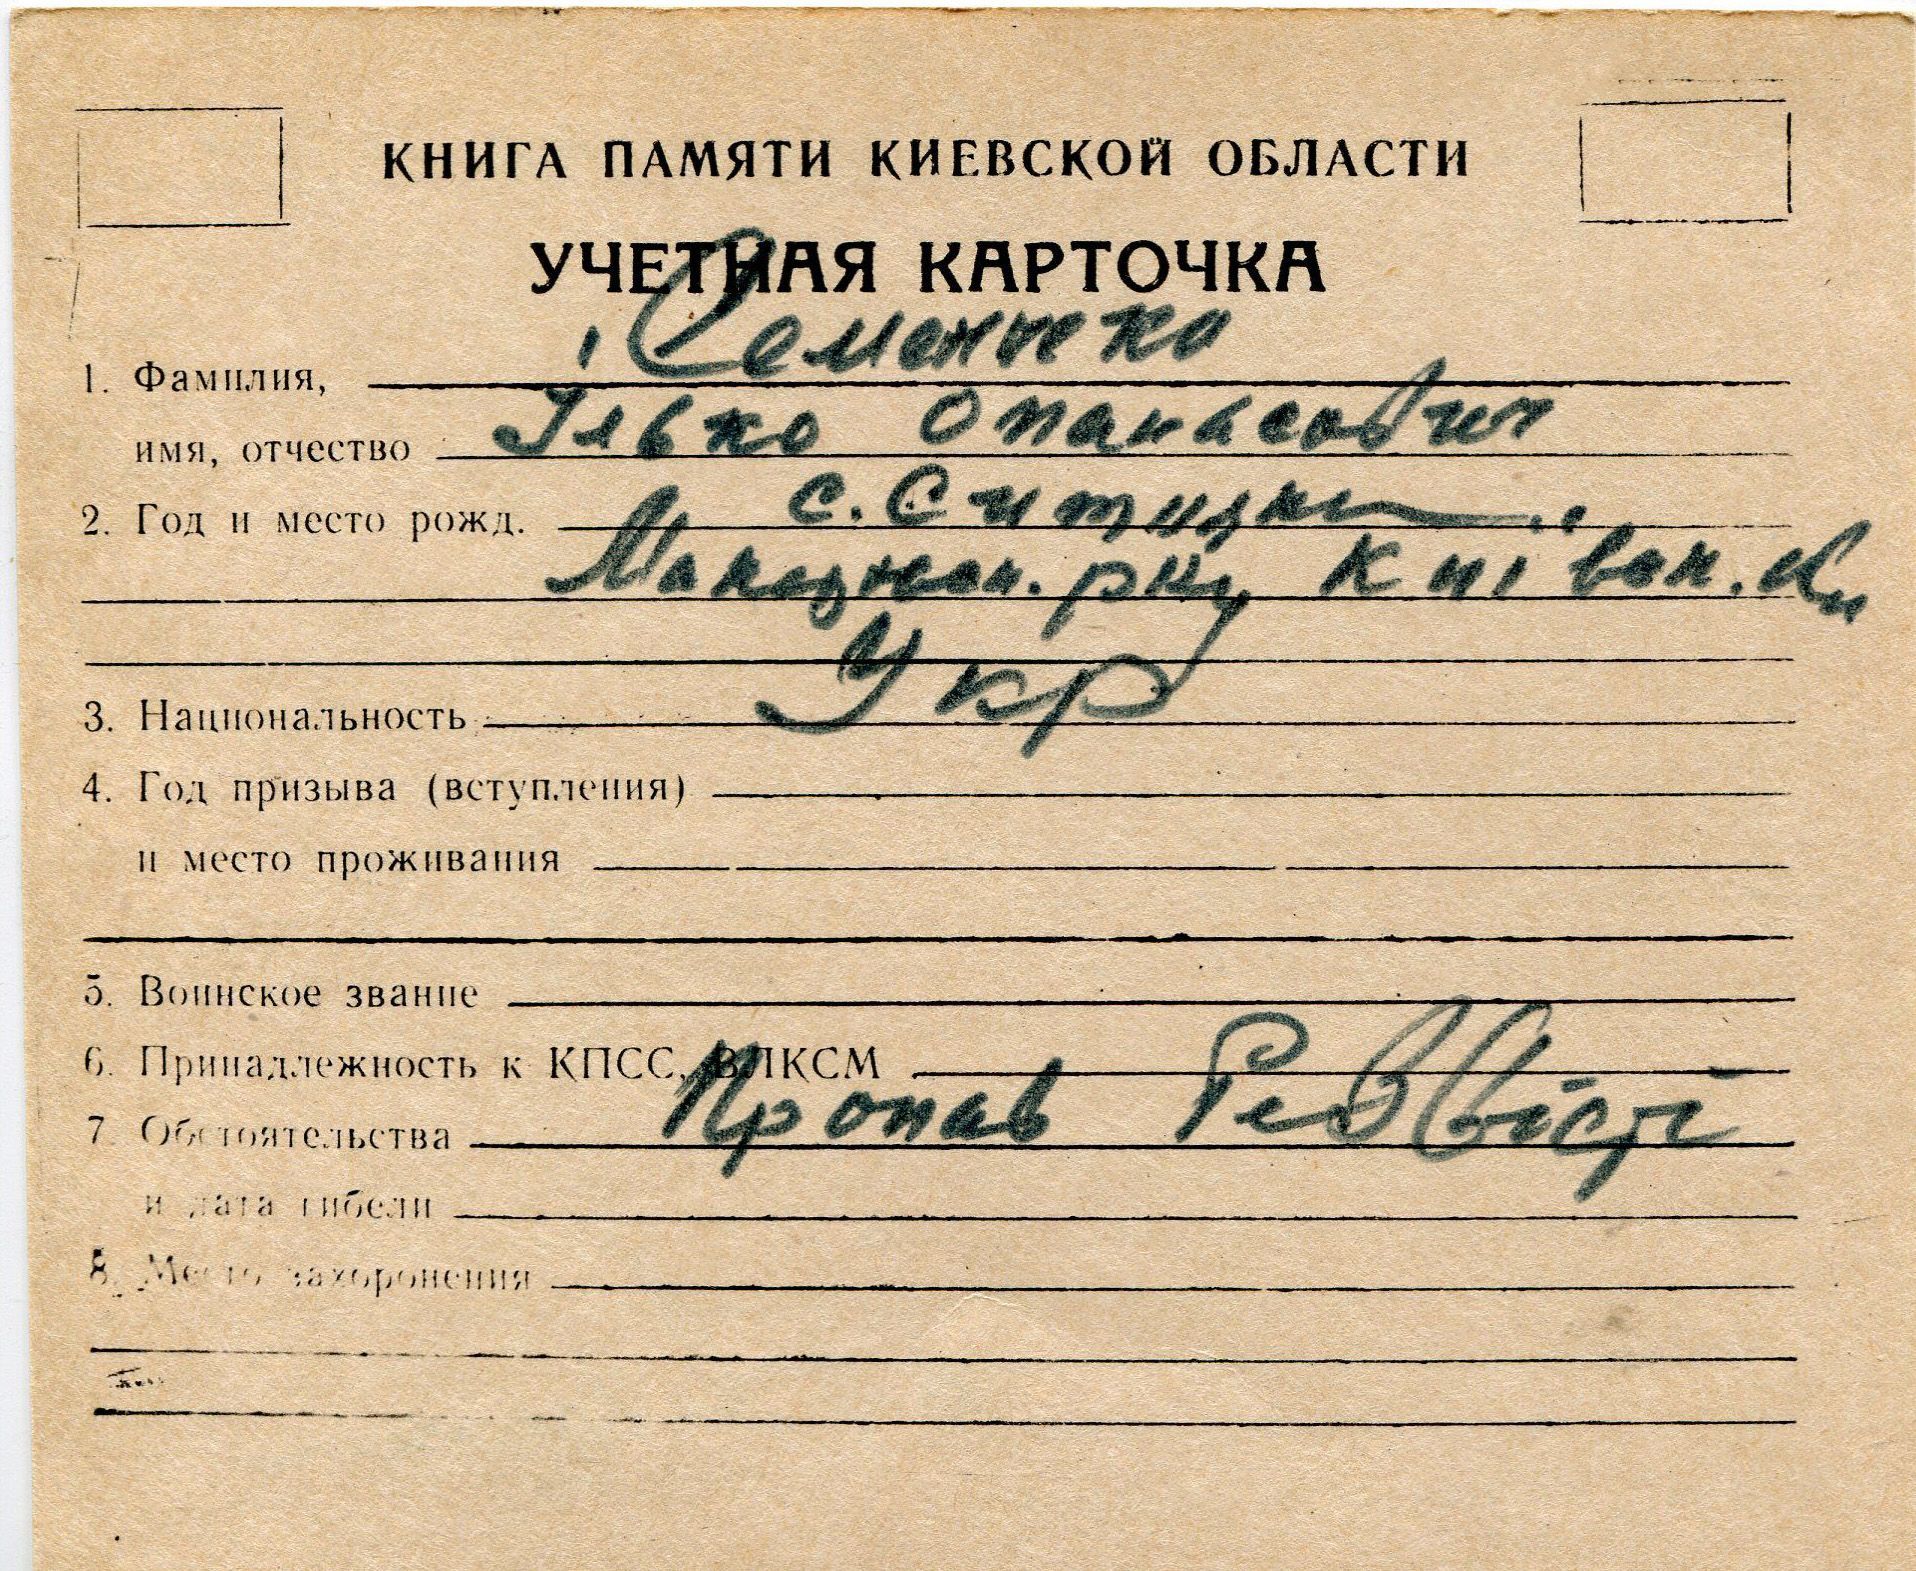 КНИГА ПАМЯТИ КИЕВСКОЙ ОБЛАСТИ
УЧЕТНАЯ КАРТОЧКА
1. Фамилия, Семененко
имя, отчество Ілько Опанасович
2. Год и место рожд. с. Ситняки
Макарівськ. р-ну Київськ. обл
3. Национальность Укр
4. Год призыва (вступления)
и место проживания
5. Воинское звание
6. Принадлежность к КПСС, ВЛКСМ
7. Обстоятельства Пропав без вісті
и дата гибели
8. Место захоронения